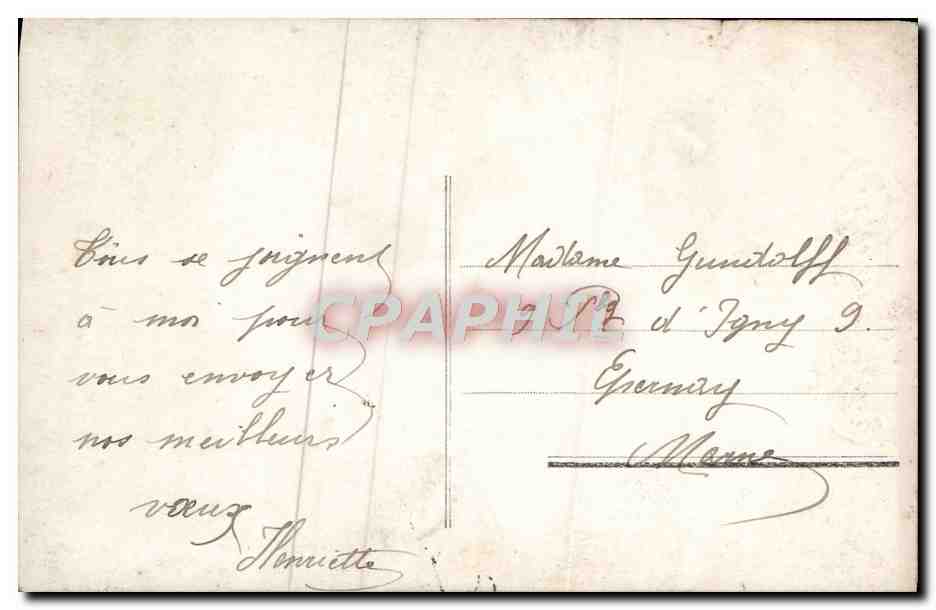 Tous se joignent
à moi pour
vous envoyer
nos meilleurs
vœux
Henriette
Madame Gundolff
9 d'Igny 9.
Epernay
Marne
CPAPHIL